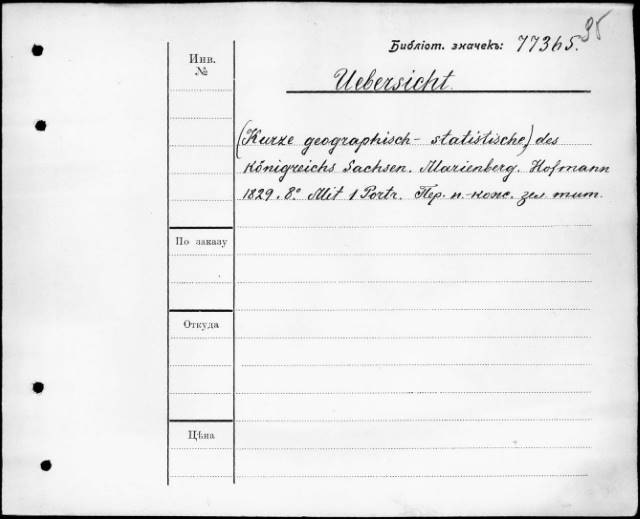 95
Библіот. значекъ: 77365.
Инв.
№
Uebersicht.
(Kurze geographisch - statistische) des
Königreichs Sachsen. Marienberg. Hofmann
1829. 8° Mit 1 Portr. Пер. п.-кож. зел. тит.
По заказу
Откуда
Цѣна